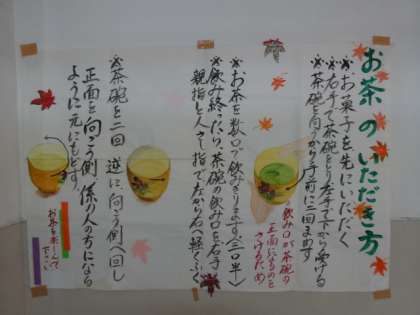 お茶のいただき方
※お菓子を先にいただく
※右手で茶碗をとり左手で下から受ける
※茶碗を向うから手前に二回まわす
飲み口が茶碗の
正面になるのを
さけるため
※お茶を数口で飲みきります(三口半)
※飲み終ったら、茶碗の飲み口を右手
親指と人さし指で左から右へ軽くふく
※茶碗を二回 逆に、向う側へ回し
正面を向こう側(係りの人の方)になる
ように元にもどす。
お茶を楽しんで
下さい